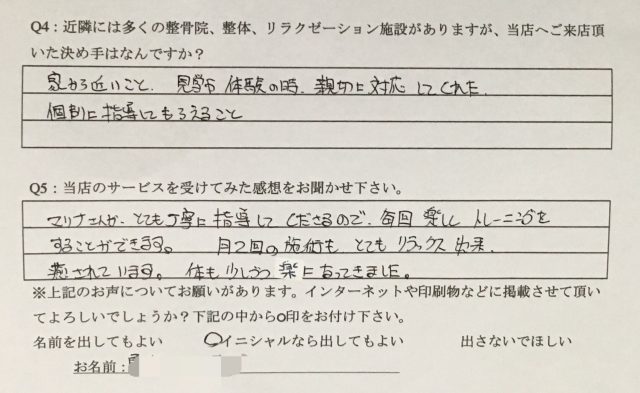 Q4：近隣には多くの整骨院、整体、リラクゼーション施設がありますが、当店へご来店頂
いた決め手はなんですか？
家から近いこと、見学や体験の時、親切に対応してくれた。
個別に指導してもらえること
Q5：当店のサービスを受けてみた感想をお聞かせ下さい。
マリナさんが、とても丁寧に指導してくださるので、毎回楽しくトレーニングを
することができます。 月2回の施術もとてもリラックス出来、
癒されています。 体も少しづつ楽になってきました。
※上記のお声についてお願いがあります。インターネットや印刷物などに掲載させて頂い
てよろしいでしょうか？下記の中から○印をお付け下さい。
名前を出してもよい ○イニシャルなら出してもよい 出さないでほしい
お名前：